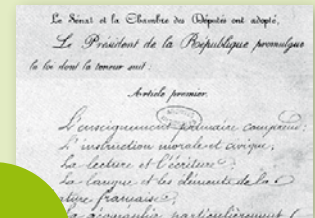 Le Sénat et la Chambre des Députés ont adopté,
Le Président de la République promulgue
la loi dont la teneur suit :
Article premier.
L'enseignement primaire comprend :
L'instruction morale et civique ;
La lecture et l'écriture ;
La langue et les éléments de la
ture française ;
La géographie, particulièrement